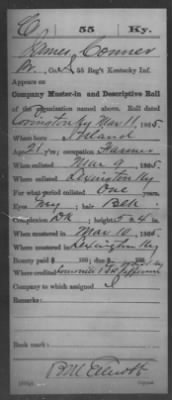 C 55 Ky.
James Conner
Co. 55 Reg't Kentucky Inf.
Appears on
Company Muster-in and Descriptive Roll
of the organization named above. Roll dated
Covington Ky Mar 11, 1865.
Where born Ireland
Age 21 y'rs; occupation Farmer
When enlisted Mar 9, 1865.
Where enlisted Lexington Ky
For what period enlisted One years.
Eyes Grey; hair Blk.
Complexion Dk; height 5 ft. 4 in.
When mustered in Mar 10, 1865.
Where mustered in Lexington Ky
Bounty paid $ 100; due $ 100
Where credited
Company to which assigned
Remarks:
Book mark:
Copyist.